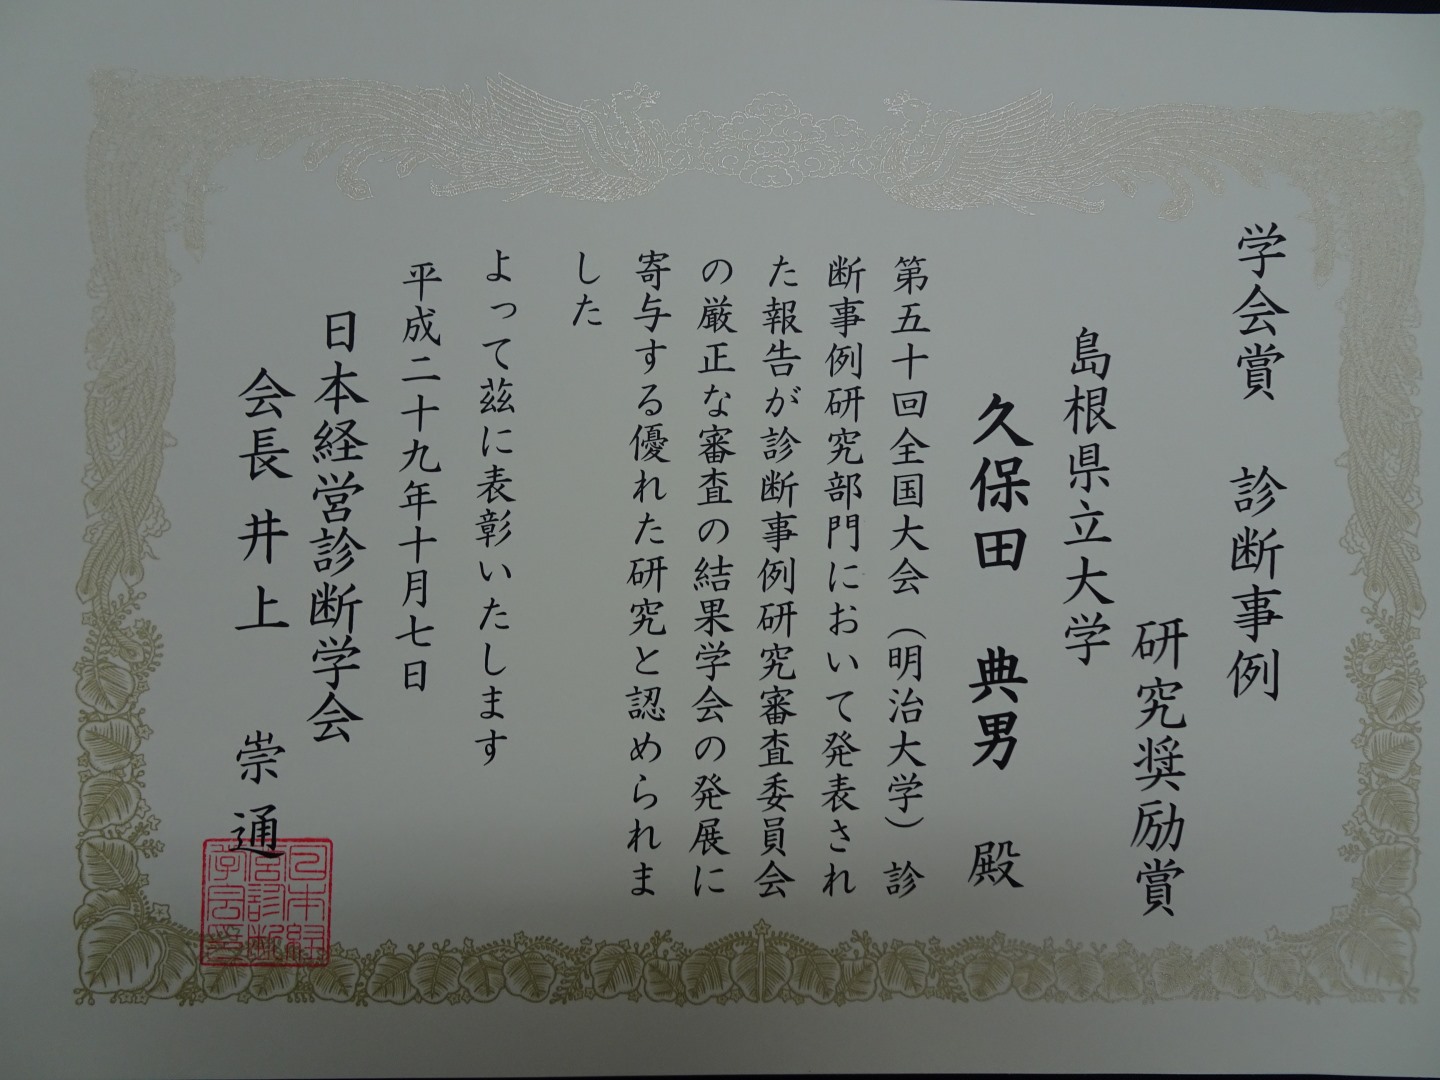 学会賞　診断事例
研究奨励賞
島根県立大学
久保田　典男　殿
第五十回全国大会（明治大学）診
断事例研究部門において発表され
た報告が診断事例研究審査委員会
の厳正な審査の結果学会の発展に
寄与する優れた研究と認められま
した
よって茲に表彰いたします
平成二十九年十月七日
日本経営診断学会
会長　井上　崇通
日本経
営診断
学会印